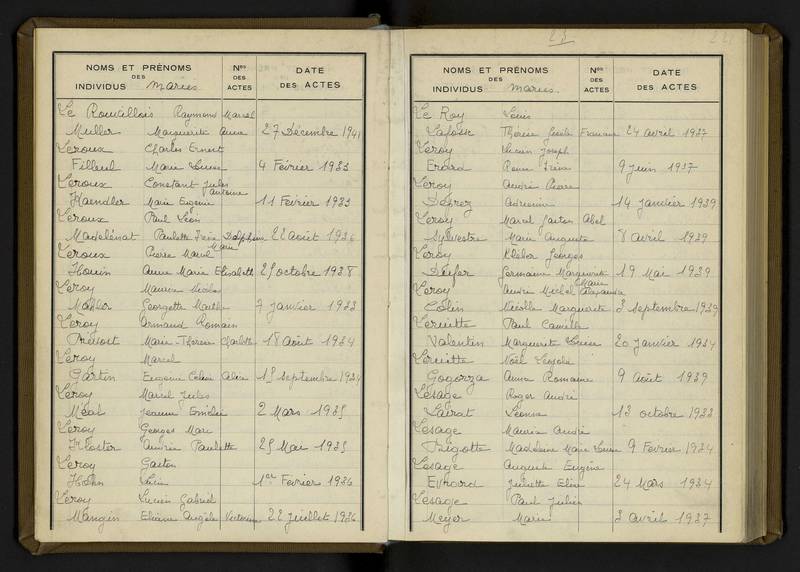 NOMS ET PRÉNOMS
DES
INDIVIDUS Mariés
Nos
DES
ACTES
DATE
DES ACTES
Le Roucillois Raymond Marcel
Muller Marguerite Anna 27 Décembre 1941
Leroux Charles Ernest
Filleul Marie Louise 4 Février 1933
Leroux Constant Jules Antoine
Haendler Marie Eugénie 11 Février 1933
Leroux Paul Léon
Madelénat Paulette Delphine 22 août 1936
Leroux Pierre Marie
Houin Anne Marie Elisabeth 25 octobre 1938
Leroy Maurice
Georgette 7 janvier 1933
Leroy Armand Romain
Prévost Marie-Thérèse Charlotte 18 août 1934
Leroy Marcel
Gartin Eugénie Alice 15 septembre 1934
Leroy Marcel Jules
Méal Jeanne Emélie 2 Mars 1935
Leroy Georges Marc
Kloster Andrée Paulette 25 Mai 1935
Leroy Gaston
Hohn 1er Février 1936
Leroy Lucien Gabriel
Mangin Eliane Angèle Victorine 22 juillet 1936
23
NOMS ET PRÉNOMS
DES
INDIVIDUS Mariés
Nos
DES
ACTES
DATE
DES ACTES
Le Roy Louis
Lafosse Thérèse 24 avril 1937
Leroy Lucien Joseph
Erard Renée 9 juin 1937
Leroy André Pierre
14 janvier 1939
Leroy Marcel Gaston Abel
Sylvestre Marie Augusta 8 avril 1939
Leroy Kléber Georges
Germaine Marguerite 19 Mai 1939
Leroy André Michel
Colin Nicolle Marguerite 3 septembre 1939
Paul Camille
Valentin Marguerite 20 janvier 1934
Noël
Gogorza Anna Romaine 9 août 1939
Lesage Roger André
Léonie 13 octobre 1933
Lesage Maurice André
Madeleine Marie Louise 9 Février 1934
Lesage Auguste Eugène
Juliette 24 Mars 1934
Lesage Paul Julien
Meyer Marie 3 avril 1937